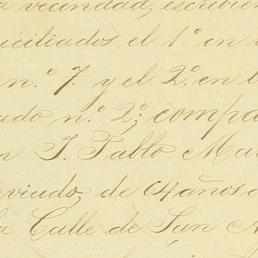 a vecindad, escribien
iciliados el 1º en
nº 7. y el 2º en l
ado nº 2; compa
n J. Pablo Mu
viudo, de 64 años
la Calle de San